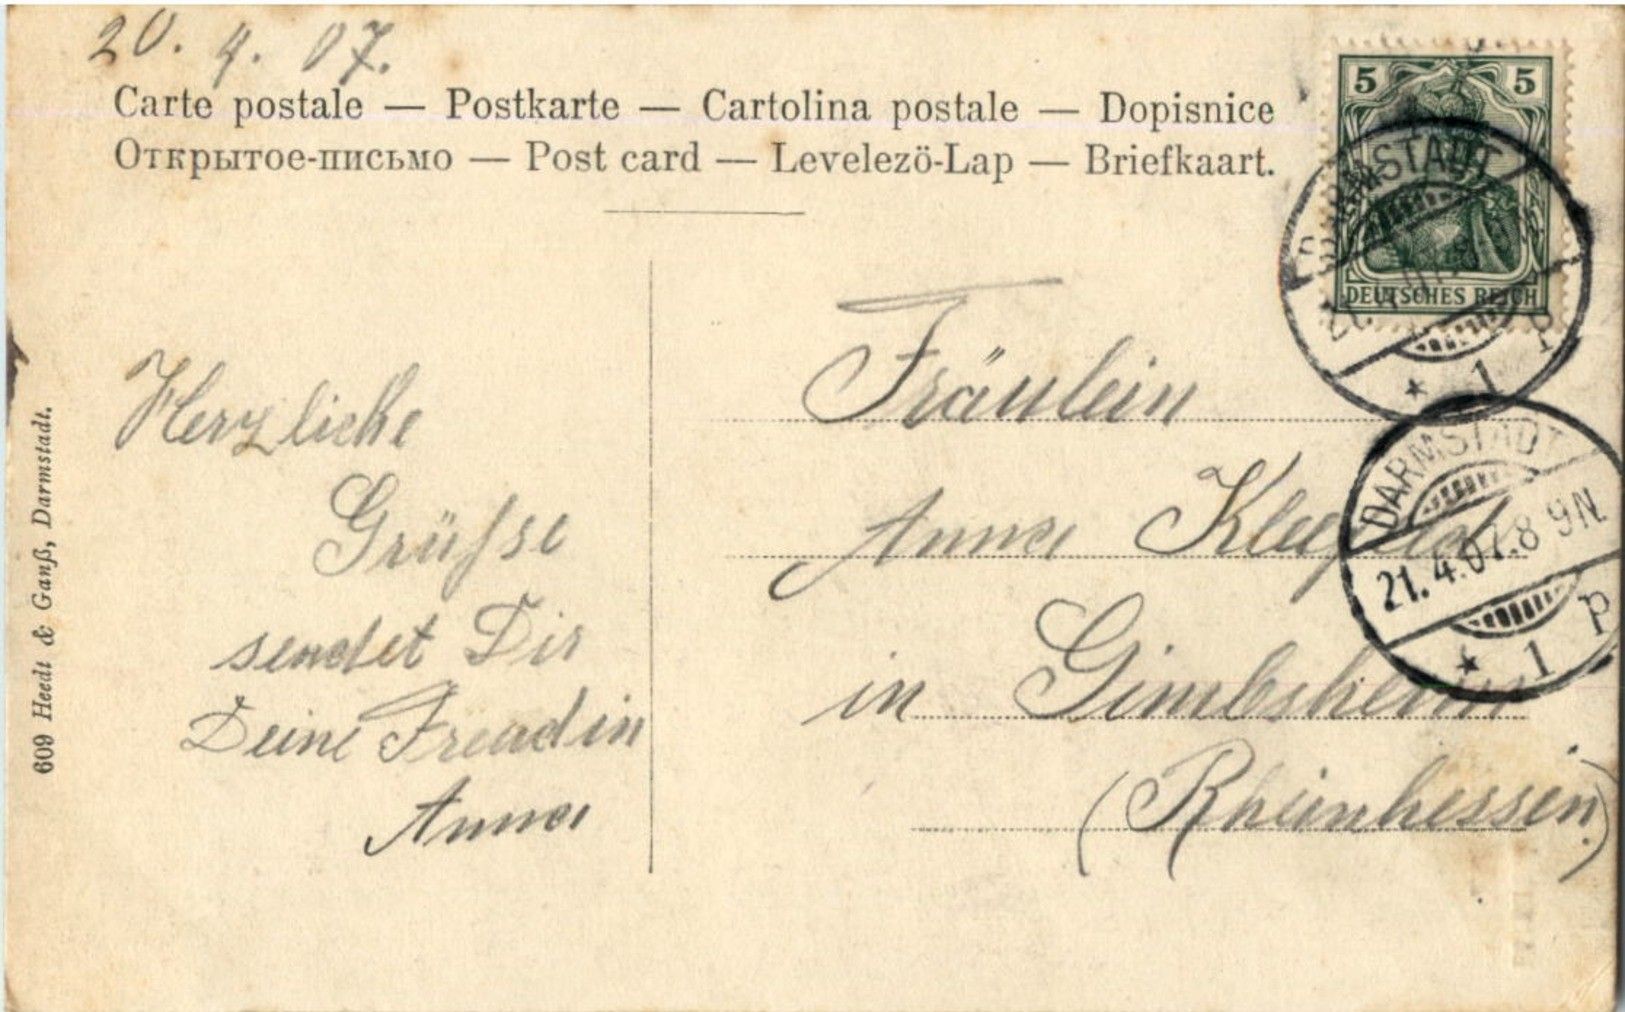 20. 4. 07.
Carte postale — Postkarte — Cartolina postale — Dopisnice
Открытое-письмо — Post card — Levelezö-Lap — Briefkaart.
5 5
DEUTSCHES REICH
DARMSTADT
* 1 P
DARMSTADT
21.4.07.8 9N.
* 1 P
Herzliche
Grüfse
sendet Dir
Deine Freundin
Anna
Fräulein
Anna
in Gimbsheim
(Rheinhessen)
609 Heedt & Ganß, Darmstadt.